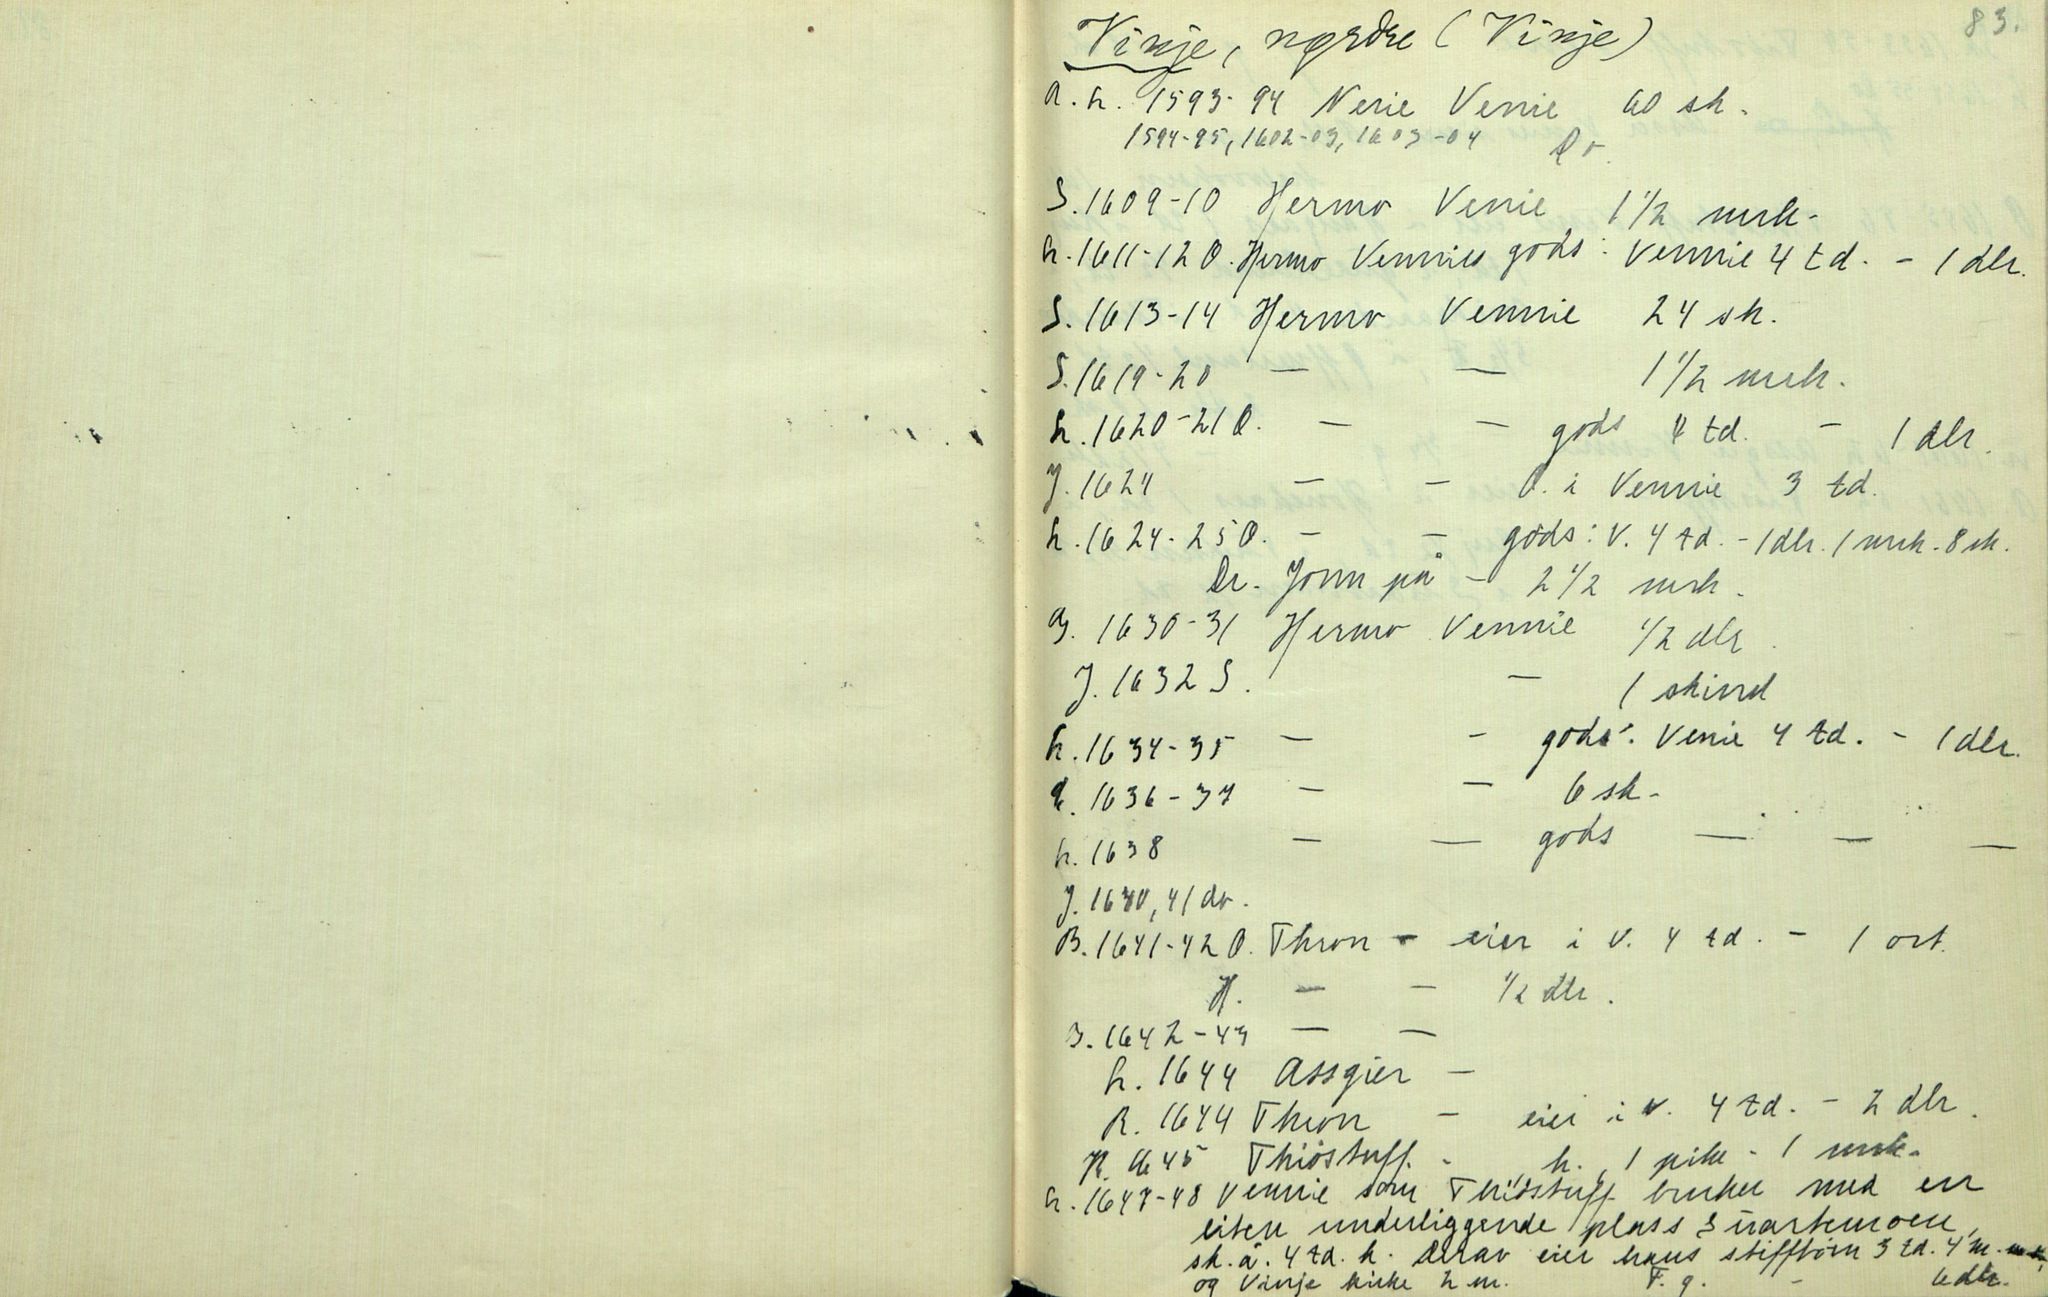 83.
Vinje, nordre (Vinje)
R. L. 1593-94 Nerie Venie 60 sk.
1594-95, 1602-03, 1603-04 Do.
S. 1609-10 Hermo Venie 1 1/2 mrk.
L. 1611-12 O. Hermo Vennies gods: Vennie 4 td. - 1 dlr.
S. 1613-14 Hermo Vennie 24 sk.
S. 1619-20 — — 1 1/2 mrk.
L. 1620-21 O. — — gods 4 td. - 1 dlr.
J. 1624 — — O. i Vennie 3 td.
L. 1624-25 O. — — gods: V. 4 td. - 1 dlr. 1 mrk. 8 sk.
Dr. Jonn på - 2 1/2 mrk.
1630-31 Hermo Vennie 1/2 dlr.
J. 1632 S. — 1 skind
L. 1634-35 — - gods: Venie 4 td. - 1 dlr.
1636-37 — — 6 sk.
L. 1638 — — gods — — —
J. 1640, 41 do.
B. 1641-42 O. Thron - eier i V. 4 td. - 1 ort.
H. — — 1/2 dlr.
1642-43 — —
L. 1644 Assgier —
R. 1644 Thron - eier i V. 4 td. - 2 dlr.
R. 1645 Thiöstuff. - h. 1 pike - 1 mrk.
L. 1647-48 Vennie som Thiöstuff bruker med en
liten underliggende plass Suartemoen,
sk. å. 4 td. h. Derav eier hans stiffbörn 3 td. 4 m.
og Vinje kirke 2 m. F. g. - 6 dlr.